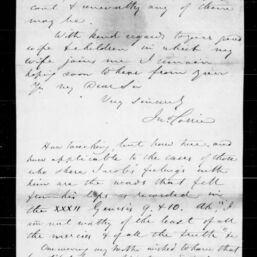 cont & unworthy any of them
may be.
With kind regards to your good
wife & children in which my
wife joins me I remain
hoping soon to hear from you
My Dear Sir
Very sincerely
Jno
How touching, but how true, and
how applicable to the cases of those
who share Jacob's feelings with
him are the words that fell
from his lips as recorded in
the XXXII Genesis 9. & 10. Ah "I
am not worthy of the least of all
the mercies & of all the truth" &c
my mother wished to have that